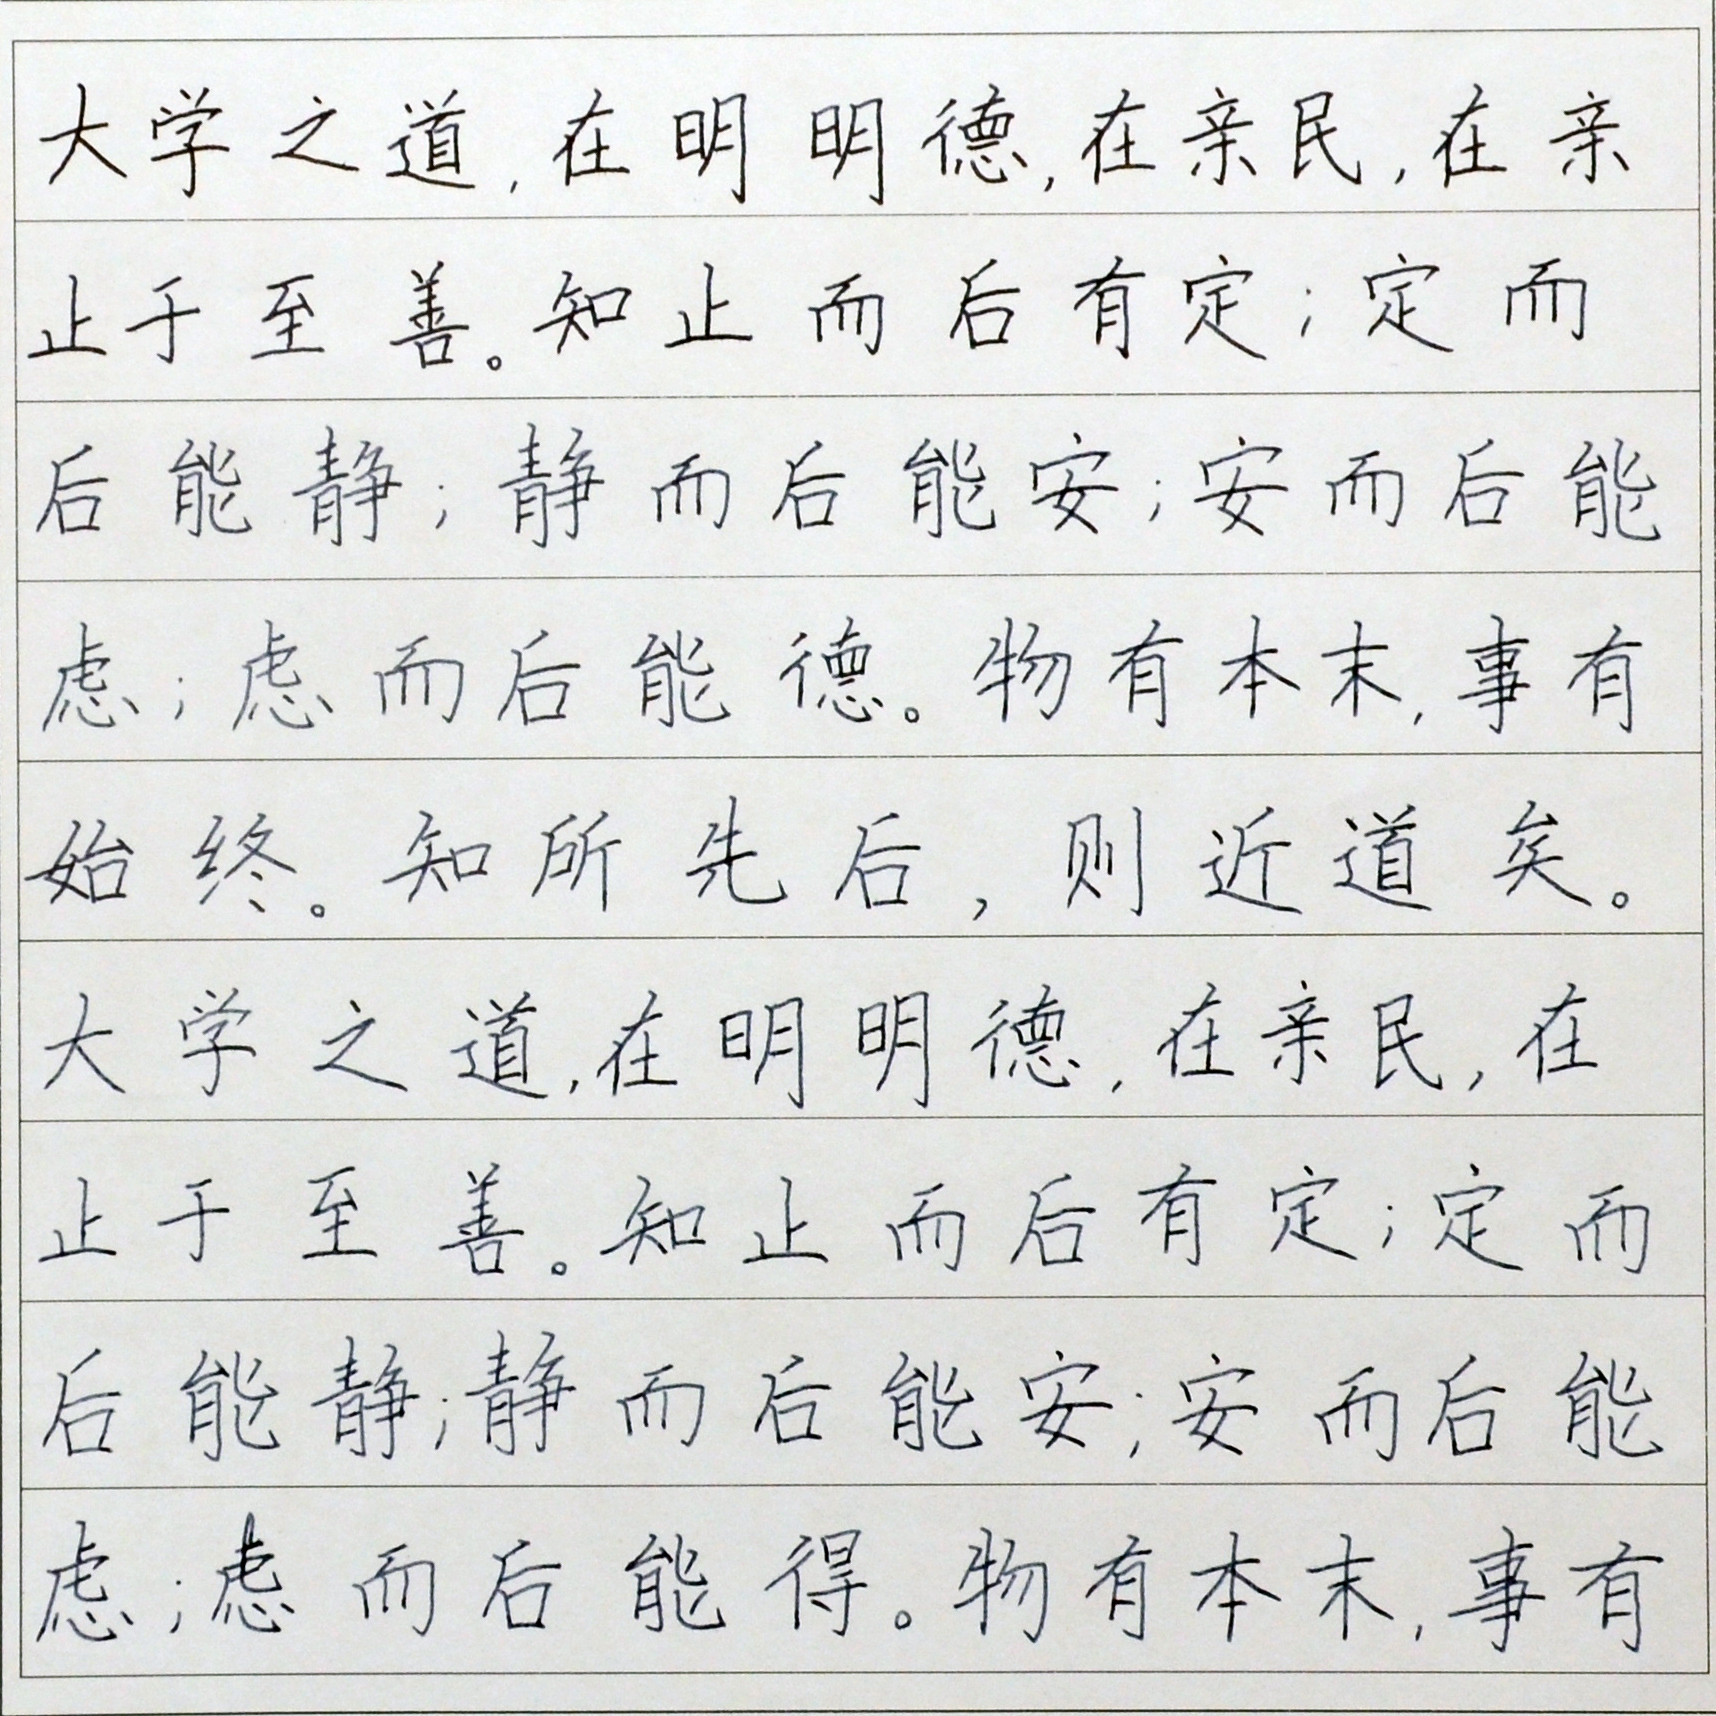 大学之道,在明明德,在亲民,在亲
止于至善。知止而后有定;定而
后能静;静而后能安;安而后能
虑;虑而后能德。物有本末,事有
始终。知所先后,则近道矣。
大学之道,在明明德,在亲民,在
止于至善。知止而后有定;定而
后能静;静而后能安;安而后能
虑;虑而后能得。物有本末,事有